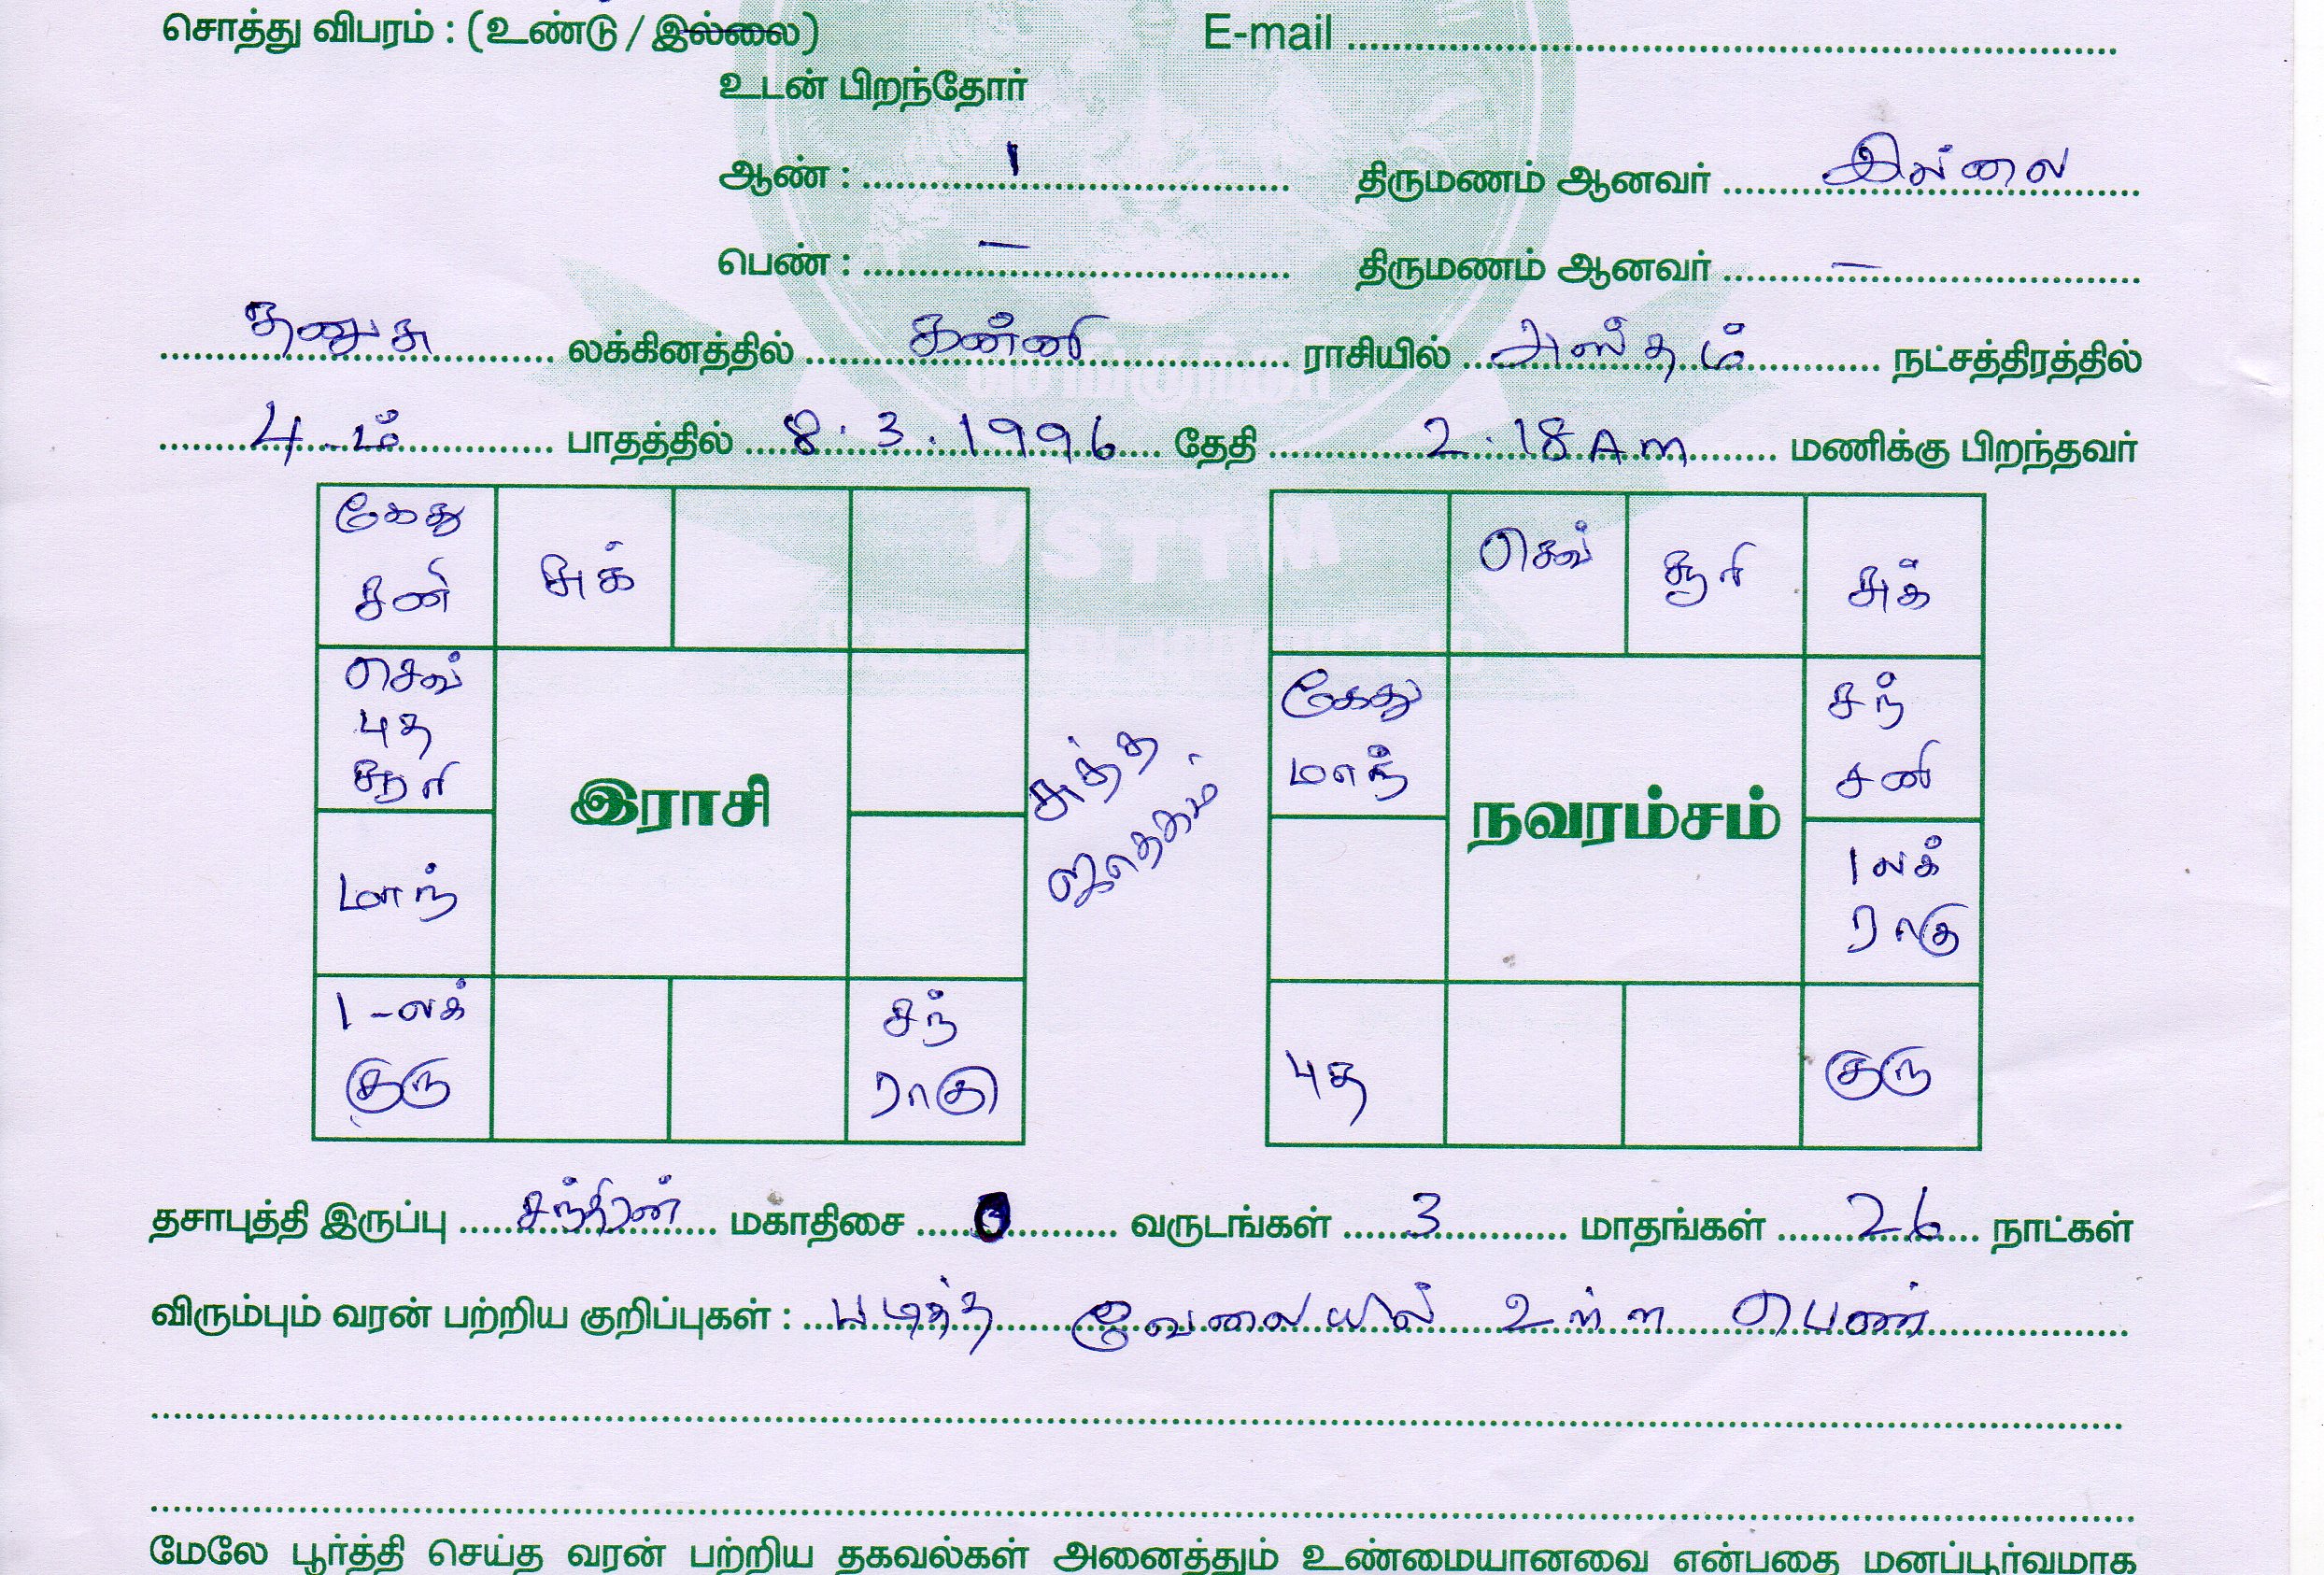 சொத்து விபரம் : (உண்டு / இல்லை) E-mail
உடன் பிறந்தோர்
ஆண் : 1 திருமணம் ஆனவர் இல்லை
பெண் : — திருமணம் ஆனவர் —
தனுசு லக்கினத்தில் கன்னி ராசியில் அஸ்தம் நட்சத்திரத்தில்
4-ம் பாதத்தில் 8.3.1996 தேதி 2.18 Am மணிக்கு பிறந்தவர்
கேது
சனி
சுக்
செவ்
புத
சூரி
மாந்
1-லக்
குரு
சந்
ராகு
இராசி
சுத்த
ஜாதகம்
செவ்
சூரி
சுக்
கேது
மாந்
சந்
சனி
1லக்
ராகு
புத
குரு
நவரம்சம்
VSTTM
தசாபுத்தி இருப்பு சந்திரன் மகாதிசை 0 வருடங்கள் 3 மாதங்கள் 26 நாட்கள்
விரும்பும் வரன் பற்றிய குறிப்புகள் : படித்த வேலையில் உள்ள பெண்
மேலே பூர்த்தி செய்த வரன் பற்றிய தகவல்கள் அனைத்தும் உண்மையானவை என்பதை மனப்பூர்வமாக